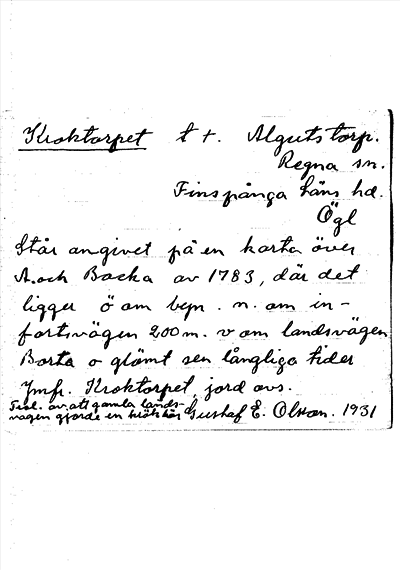 Kroktorpet t t. Algutstorp.
Regna sn.
Finspånga läns hd.
Ögl
Står angivet på en karta över
A. och Backa av 1783, där det
ligger ö om bepn. n. om in-
fartsvägen 200 m. v om landsvägen
Borta o glömt sen långliga tider
Jmfr. Kroktorpet, jord avs.
Trol. av att gamla lands-
vägen gjorde en krök här Gustaf E. Olsson. 1931